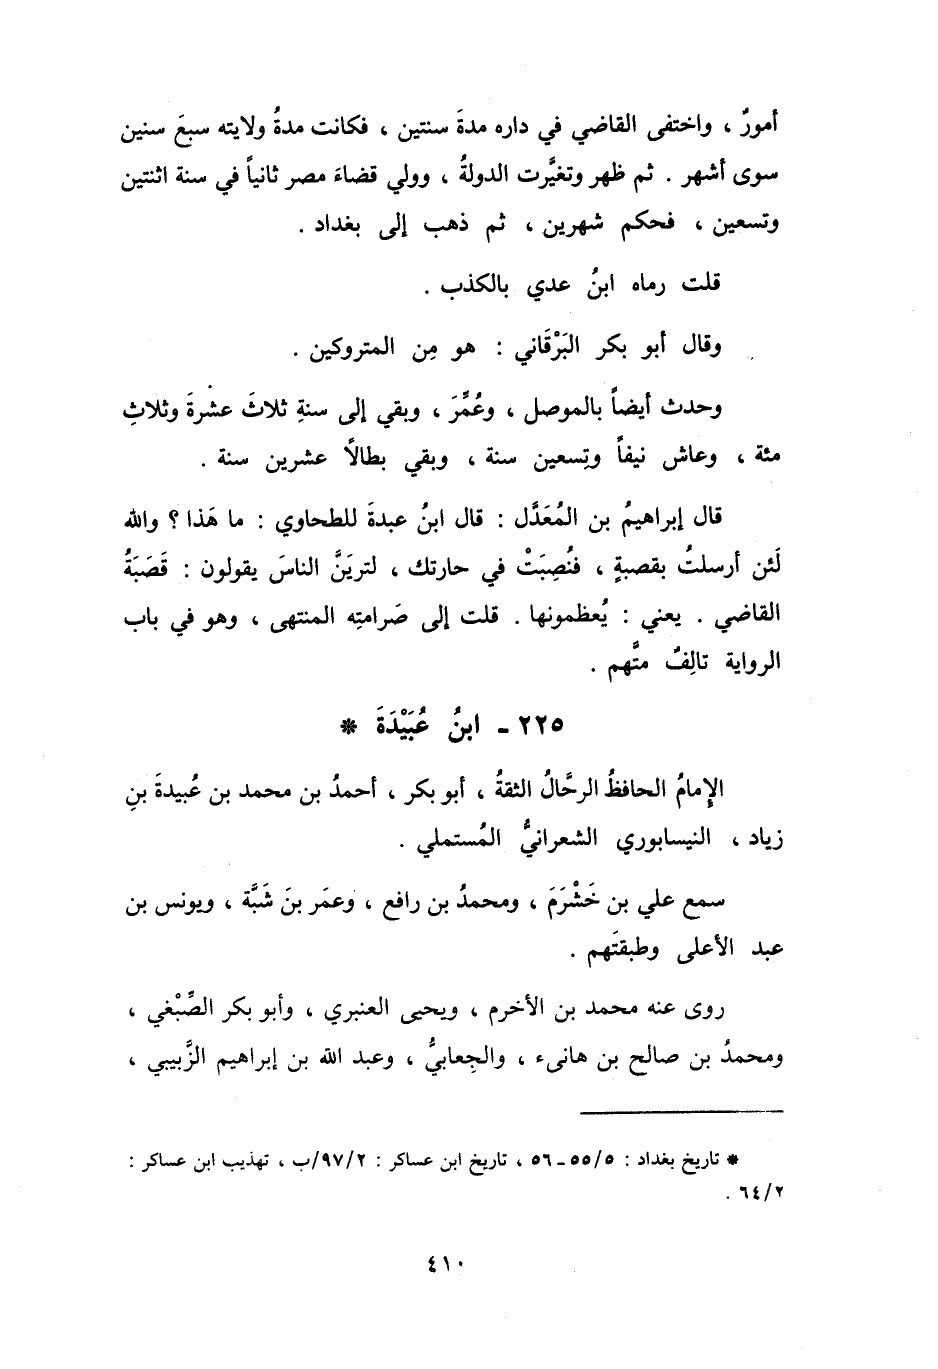 أمورٌ ، واختفى القاضي في داره مدةَ سنتين ، فكانت مدةُ ولايته سبعَ سنين
سوى أشهر . ثم ظهر وتغيَّرت الدولةُ ، وولي قضاءَ مصر ثانياً في سنة اثنتين
وتسعين ، فحكم شهرين ، ثم ذهب إلى بغداد .
قلت رماه ابنُ عدي بالكذب .
وقال أبو بكر البَرْقَاني : هو مِن المتروكين .
وحدث أيضاً بالموصل ، وعُمِّرَ ، وبقي إلى سنةِ ثلاثَ عشرةَ وثلاثِ
مئة ، وعاش نيفاً وتِسعين سنة ، وبقي بطالاً عشرين سنة .
قال إبراهيمُ بن المُعَدَّل : قال ابنُ عبدةَ للطحاوي : ما هَذا ؟ والله
لَئن أرسلتُ بقصبةٍ ، فنُصِبَتْ في حارتك ، لتريَنَّ الناسَ يقولون : قَصَبَةُ
القاضي . يعني : يُعظمونها . قلت إلى صَرامتِه المنتهى ، وهو في باب
الرواية تالِفٌ متَّهم .
٢٢٥ - ابنُ عُبَيْدَةَ *
الإِمامُ الحافظُ الرحَّالُ الثقةُ ، أبو بكر ، أحمدُ بن محمد بن عُبيدةَ بنِ
زياد ، النيسابوري الشعرانيُّ المُستملي .
سمع علي بن خَشْرَمَ ، ومحمدُ بن رافع ، وعمَر بنَ شَبَّة ، ويونس بن
عبد الأعلى وطبقتَهم .
روى عنه محمد بن الأخرم ، ويحيى العنبري ، وأبو بكر الصِّبْغي ،
ومحمدُ بن صالح بن هانىء ، والجِعابيُّ ، وعبد الله بن إبراهيم الزَّبيبي ،
* تاريخ بغداد : ٥/‏٥٥ - ٥٦ ، تاريخ ابن عساكر : ٢/‏٩٧/‏ب ، تهذيب ابن عساكر :
٢/‏٦٤ .
٤١٠